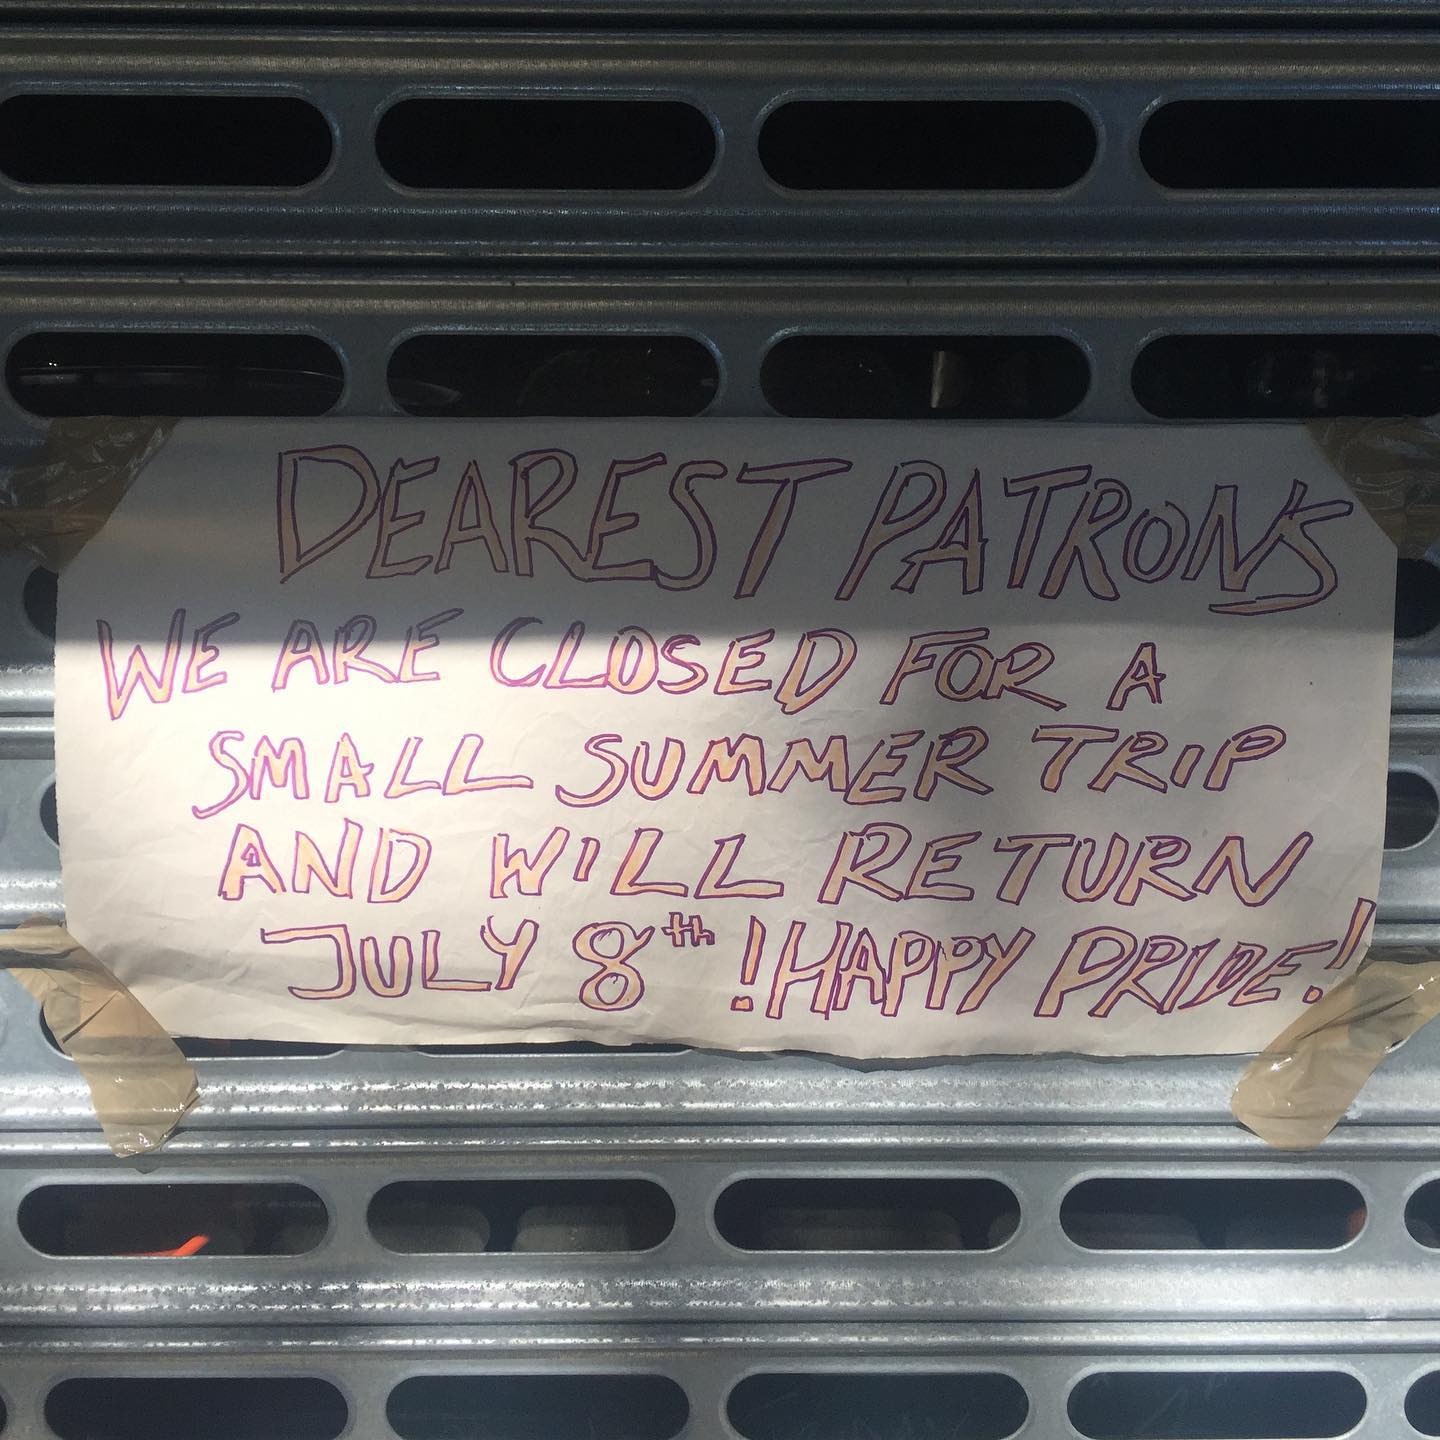 DEAREST PATRONS
WE ARE CLOSED FOR A
SMALL SUMMER TRIP
AND WILL RETURN
JULY 8th ! HAPPY PRIDE!